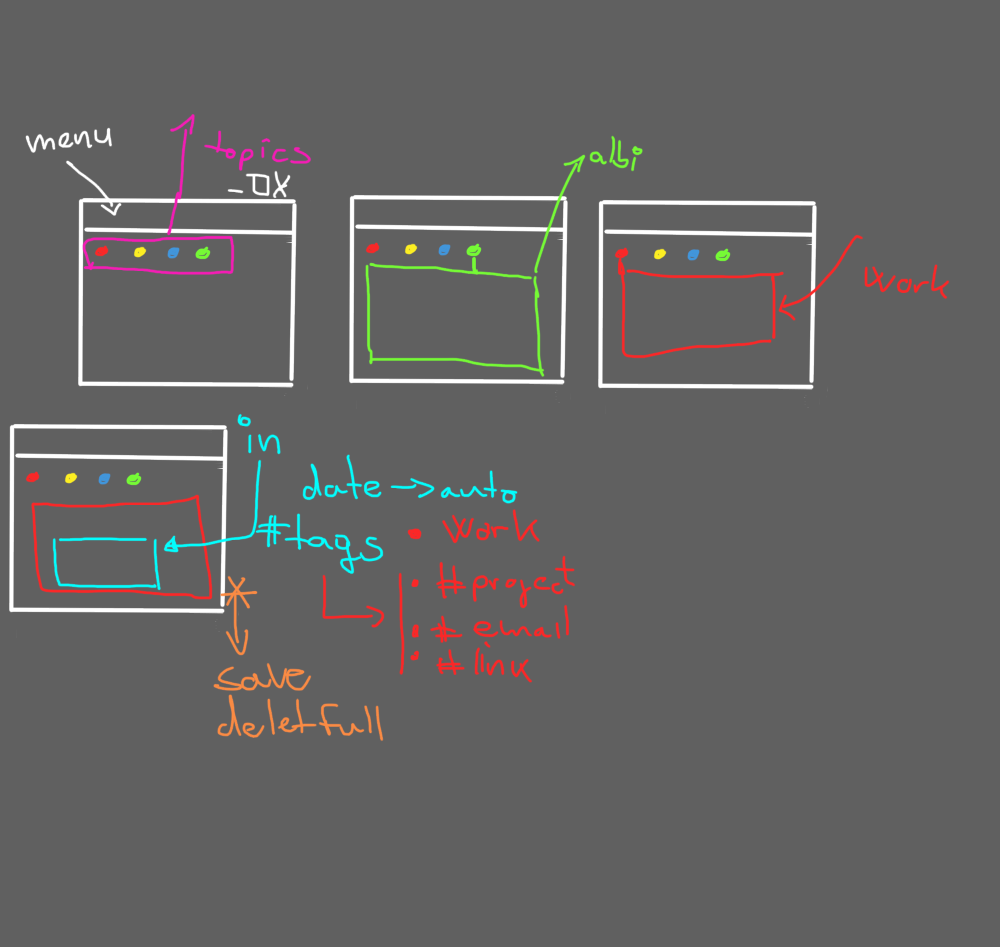 menu
topics
albi
work
in
date → auto
#tags
• Work
• #project
• # email
• # link
save
deletfull